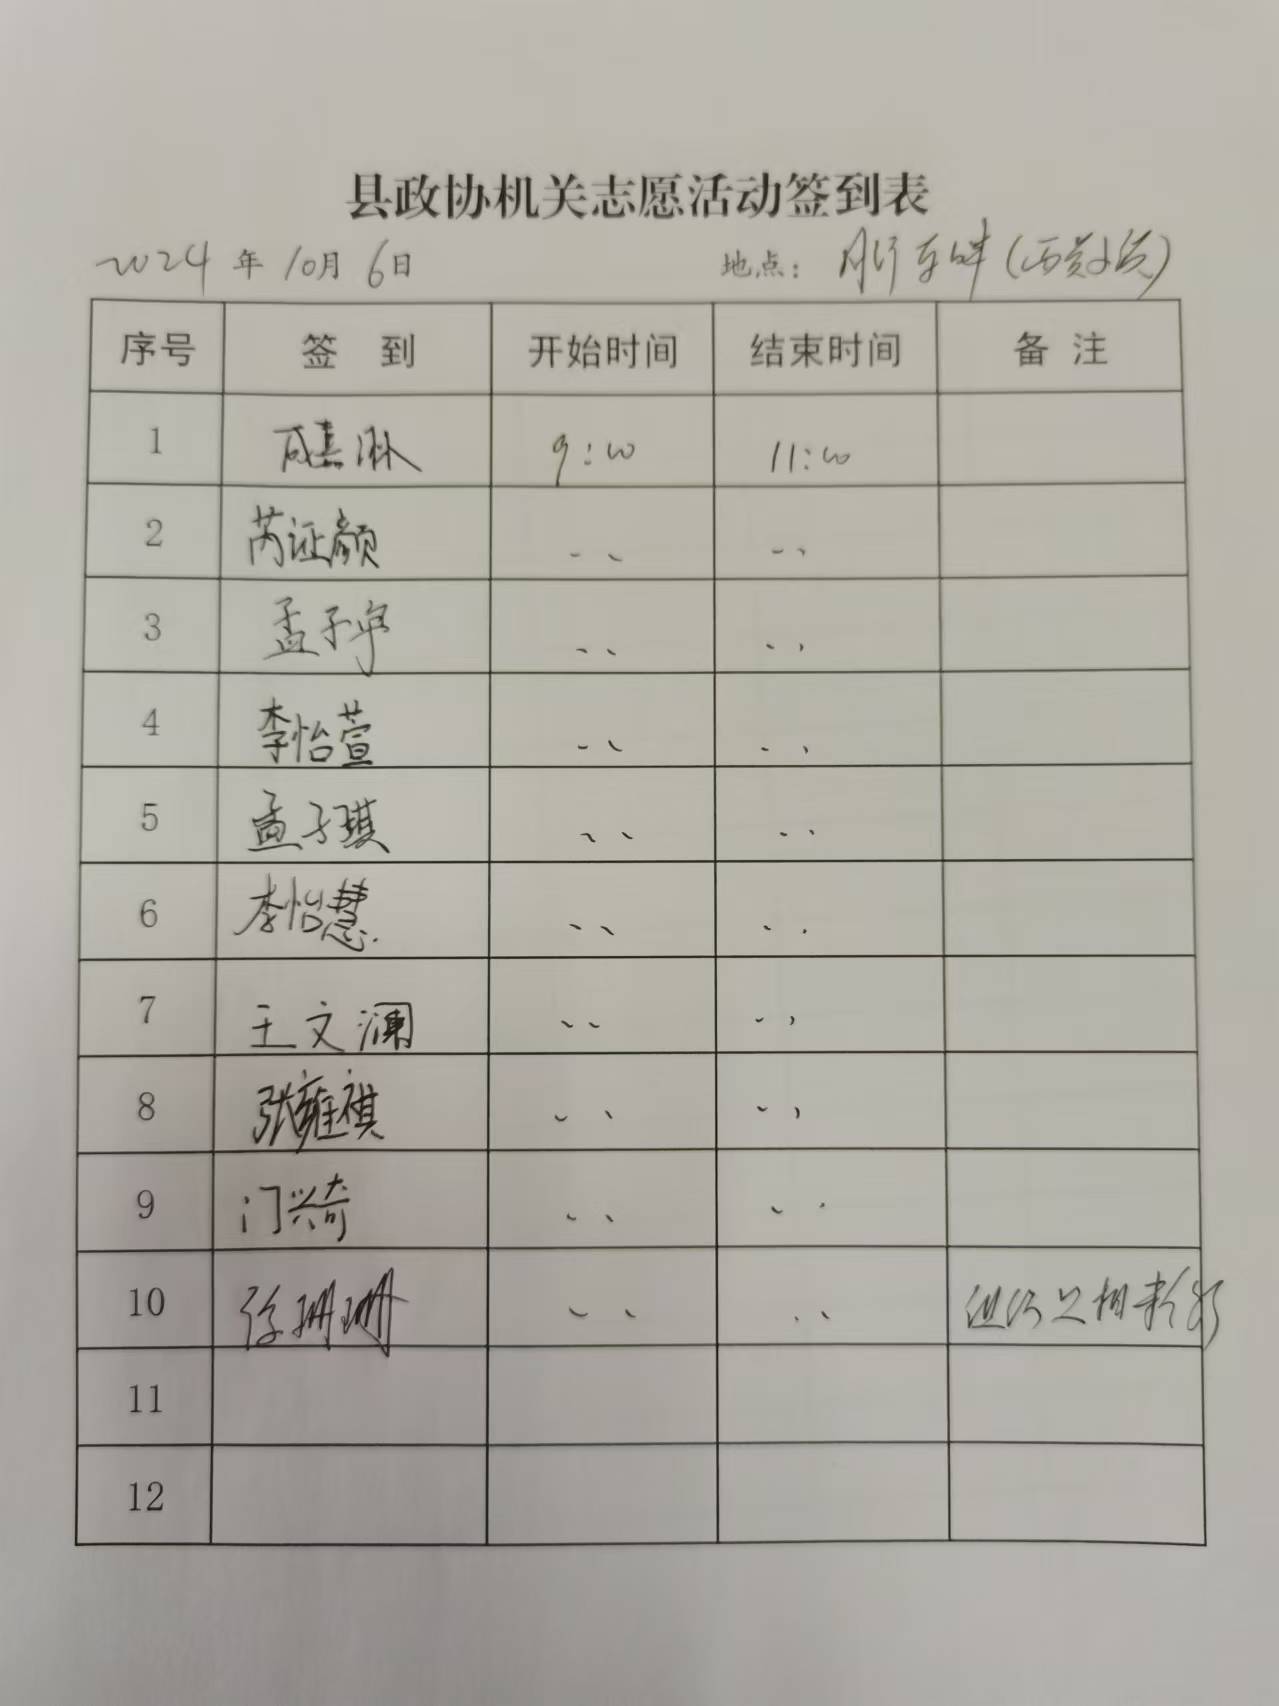 县政协机关志愿活动签到表
2024 年 10月 6日 地点：
序号 签 到 开始时间 结束时间 备 注
1 成嘉淋 9:00 11:00
2 芮证颜 〃 〃
3 孟子宁 〃 〃
4 李怡萱 〃 〃
5 孟子琪 〃 〃
6 李怡慧 〃 〃
7 王文澜 〃 〃
8 张雍祺 〃 〃
9 门兴奇 〃 〃
10 徐珊珊 〃 〃
11
12